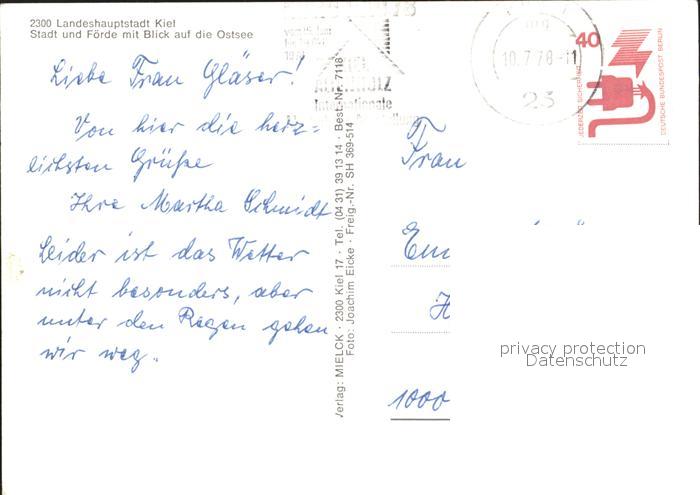 2300 Landeshauptstadt Kiel
Stadt und Förde mit Blick auf die Ostsee
Liebe Frau Gläser!
Von hier die herz=
lichsten Grüße
Ihre Martha Schmidt
Leider ist das Wetter
nicht besonders, aber
unter den Regen gehen
wir weg.
Verlag: MIELCK · 2300 Kiel 17 · Tel. (04 31) 39 13 14 · Best.-Nr. 7118
Foto: Joachim Eicke · Freig.-Nr. SH 369-514
Internationale
10.7.78-11
23
40
JEDERZEIT SICHERHEIT
DEUTSCHE BUNDESPOST BERLIN
Frau
Em
H
1000
privacy protection
Datenschutz